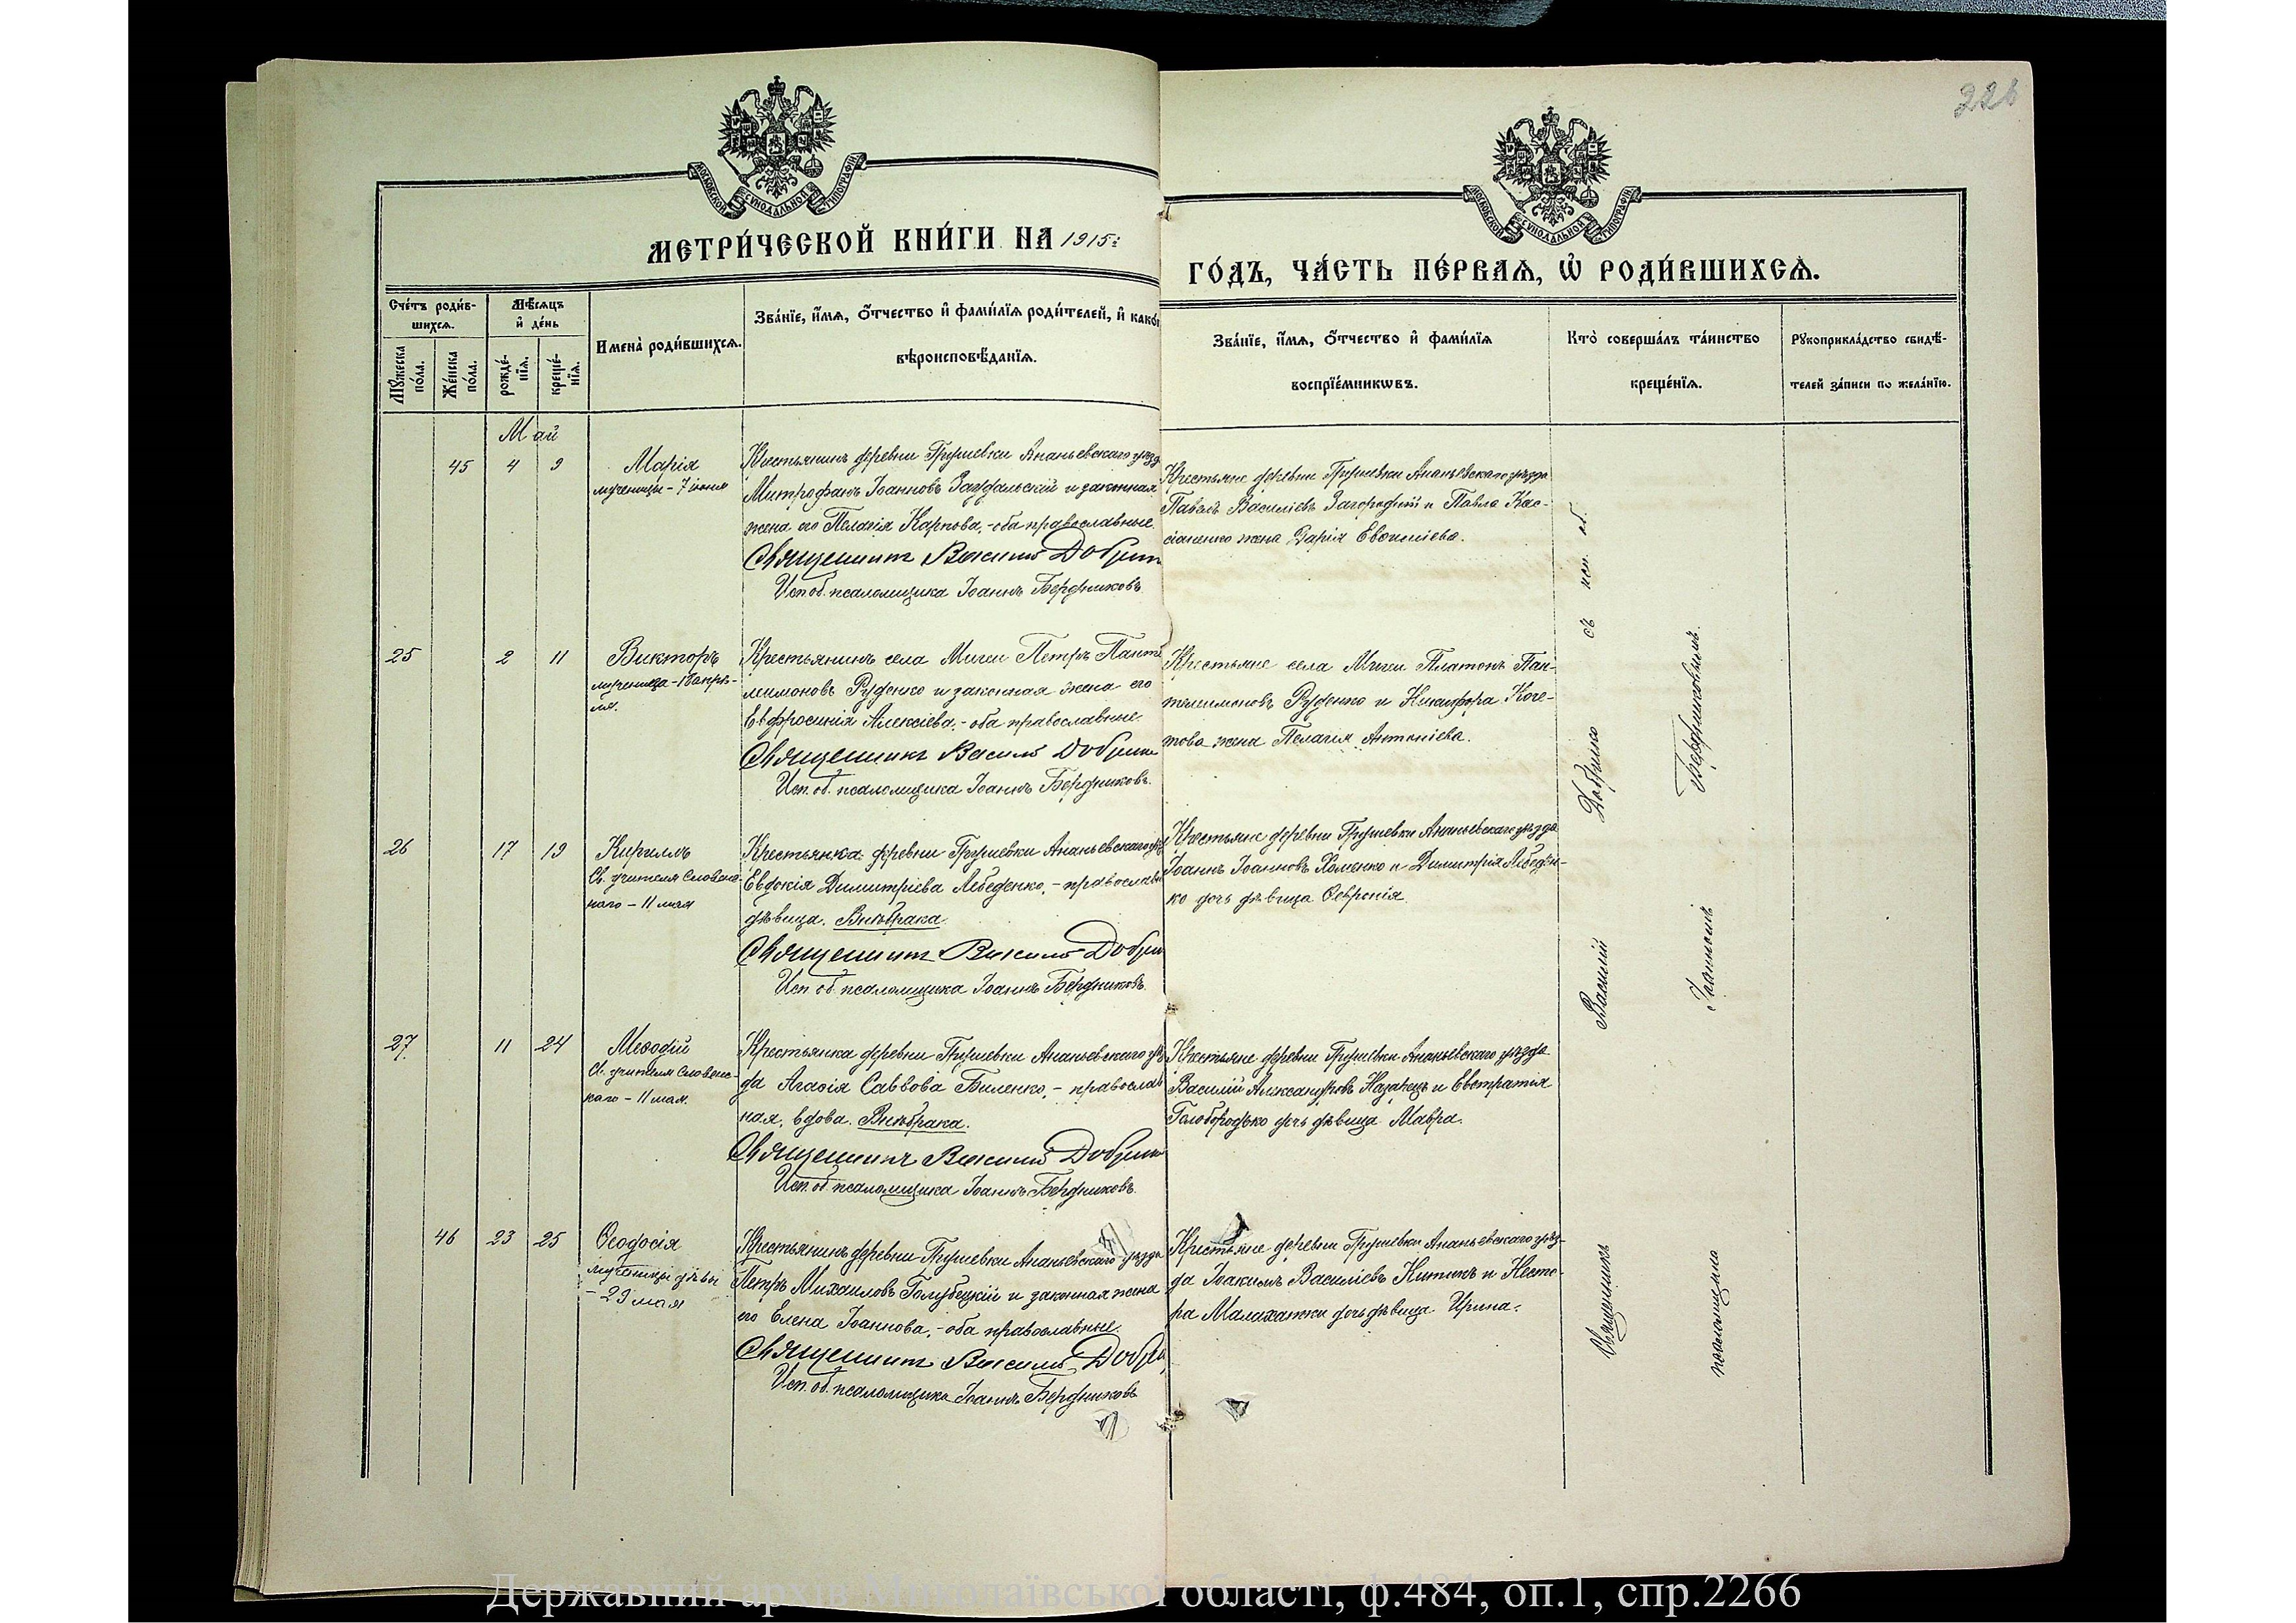 226
МОСКОВСКОЙ СѴНОДАЛЬНОЙ ТИПОГРАФІИ
МОСКОВСКОЙ СѴНОДАЛЬНОЙ ТИПОГРАФІИ
МЕТРИ́ЧЕСКОЙ КНИ́ГИ НА 1915:
ГО́ДЪ, ЧА́СТЬ ПЕ́РВАѦ, Ѡ҆ РОДИ́ВШИХСѦ.
Сче́тъ роди́в-
шихсѧ.
Мѣ́сѧцъ
и҆ де́нь
Мꙋ́жеска
по́ла.
Же́нска
по́ла.
рожде́-
нїѧ.
креще́-
нїѧ.
Имена̀ роди́вшихсѧ.
Зва́нїе, и҆́мѧ, ѻ҆́тчество и҆ фами́лїѧ роди́телей, и҆ како́
вѣроисповѣ́данїѧ.
Зва́нїе, и҆́мѧ, ѻ҆́тчество и҆ фами́лїѧ
воспрїе́мникѡвъ.
Кто̀ соверша́лъ та́инство
креще́нїѧ.
Рꙋкоприкла́дство свидѣ́-
телей за́писи по жела́нїю.
Май
45 4 9 Марія
мученицы - 7 іюня
Крестьянинъ деревни Грушевки Ананьевскаго уѣзд
Митрофанъ Іоанновъ и законная
жена его Пелагія Карпова, - оба православные.
Священникъ Василій Добрин
Исп. об. псаломщика Іоаннъ Бердниковъ
Крестьяне деревни Грушевки Ананьевскаго уѣзда
Павелъ Василіевъ Загородній и Павла Кас-
сіаненко жена Дарія
25 2 11 Викторъ
мученика - 18 апрѣ-
ля.
Крестьянинъ села Мигеи Петръ Панте
леимоновъ Руденко и законная жена его
Евфросинія Алексіева, - оба православные.
Священникъ Василій Добрин
Исп. об. псаломщика Іоаннъ Бердниковъ.
Крестьяне села Мигеи Платонъ Пан-
телеимоновъ Руденко и Никифора Коче-
това жена Пелагія Антоніева.
26 17 19 Кириллъ
Св. учителя Словенс-
каго - 11 мая
Крестьянка деревни Грушевки Ананьевскаго уѣз
Евдокія Димитріева Лебеденко, - православн
дѣвица. Внѣбрака.
Священникъ Василій Добри
Исп. об. псаломщика Іоаннъ Бердниковъ.
Крестьяне деревни Грушевки Ананьевскаго уѣзда
Іоаннъ Іоанновъ Хоменко и Димитрія Лебеден-
ко дочь дѣвица Февронія.
27 11 24 Меѳодій
Св. учителя Словенс-
каго - 11 мая.
Крестьянка деревни Грушевки Ананьевскаго уѣз
да Агаѳія Саввова Биленко, - православ
ная, вдова. Внѣбрака.
Священникъ Василій Добрин
Исп. об. псаломщика Іоаннъ Бердниковъ.
Крестьяне деревни Грушевки Ананьевскаго уѣзда
Василій Александровъ Назарецъ и Евстратія
Голобородько дочь дѣвица Мавра.
46 23 25 Ѳеодосія
мученицы дѣвы
- 29 мая
Крестьянинъ деревни Грушевки Ананьевскаго уѣзда
Петръ Михаиловъ Голубецкій и законная жена
его Елена Іоаннова, - оба православные.
Священникъ Василій Добри
Исп. об. псаломщика Іоаннъ Бердниковъ
Крестьяне деревни Грушевки Ананьевскаго уѣз-
да Іоакимъ Василіевъ и Несто-
ра Малахатки дочь дѣвица Ирина.
Священникъ Василій Добринко съ исп. об.
псаломщика Іоанномъ Бердниковымъ.
Державний архів Миколаївської області, ф.484, оп.1, спр.2266